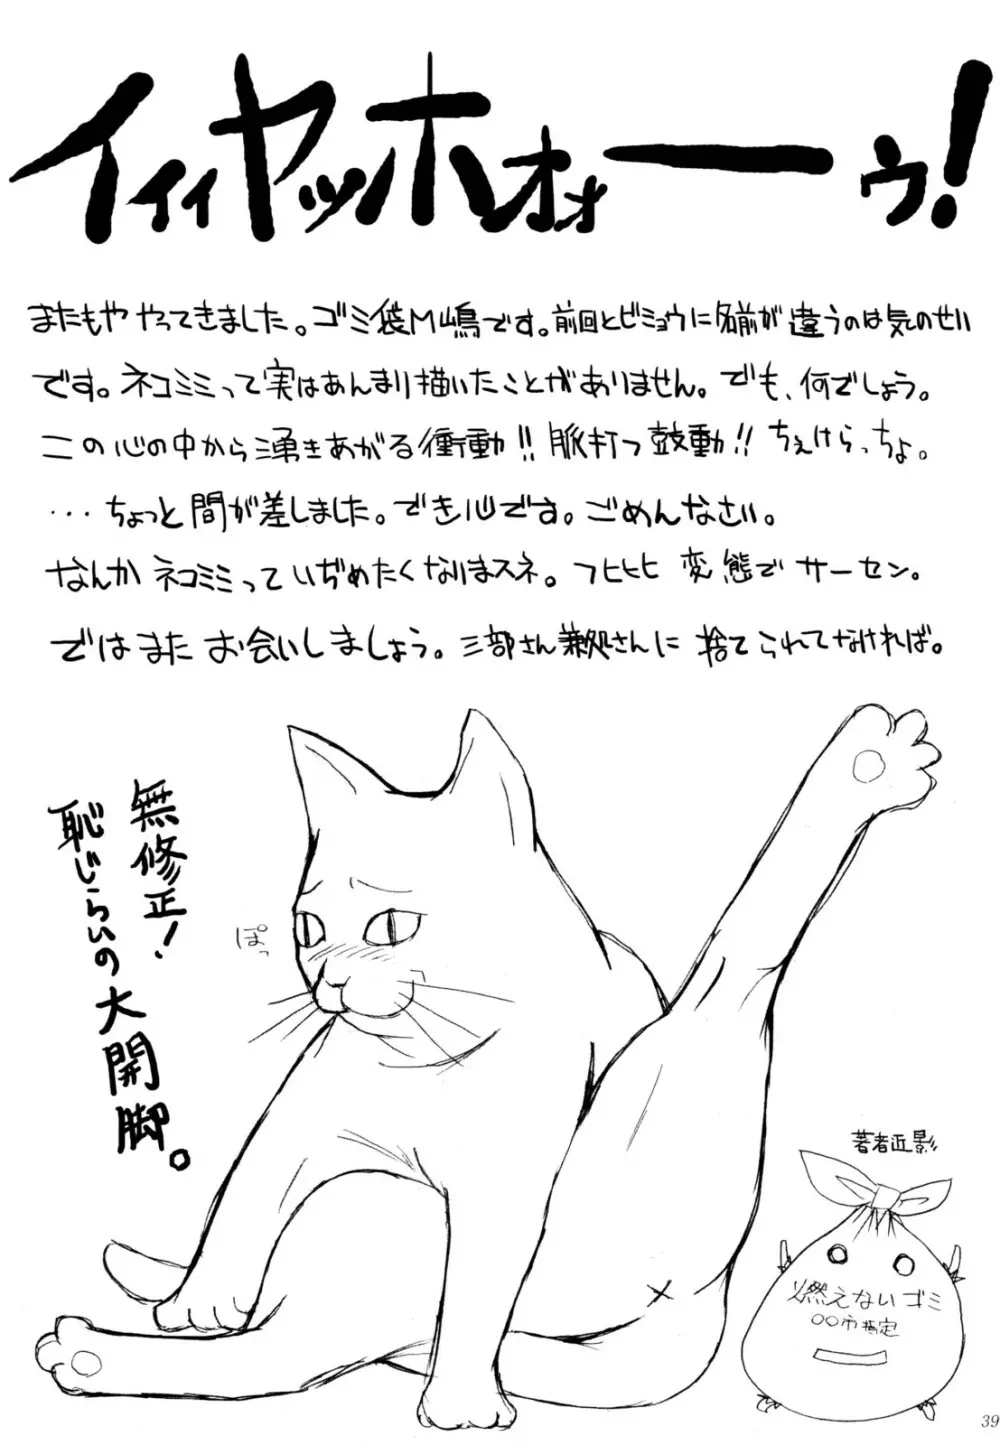 イィィヤッホォォーーゥ！
またもや やってきました。ゴミ袋M嶋です。前回とビミョウに名前が違うのは気のせい
です。ネコミミって実はあんまり描いたことがありません。でも、何でしょう。
この心の中から湧きあがる衝動!! 脈打つ鼓動!! ちぇけらっちょ。
・・・ちょっと間が差しました。でき心です。ごめんなさい。
なんか ネコミミっていぢめたくなりまスネ。フヒヒヒ 変態でサーセン。
ではまた お会いしましょう。三部さん兼処さんに 捨てられてなければ。
無修正！
恥じらいの大開脚。
ぽっ
著者近影
燃えないゴミ
○○市指定
39